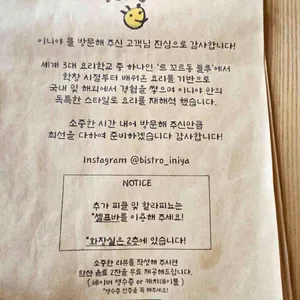 이니야 를 방문해 주신 고객님 진심으로 감사합니다!
세계 3대 요리학교 중 하나인 '르 꼬르동 블루'에서
학창 시절부터 배워온 요리를 기반으로
국내 및 해외에서 경험을 쌓으며 이니야 만의
독특한 스타일로 요리를 재해석 했습니다.
소중한 시간 내어 방문해 주신만큼
최선을 다하여 준비하겠습니다 감사합니다!
Instagram @bistro_iniya
NOTICE
추가 피클 및 할라피뇨는
"셀프바를 이용해 주세요!
*화장실은 2층에 있습니다!
소중한 리뷰를 작성해 주시면
탄산 음료 2잔을 무료 제공해드립니다.
(네이버 영수증 or 캐치테이블)
*영수증 인증을 꼭 해주세요!